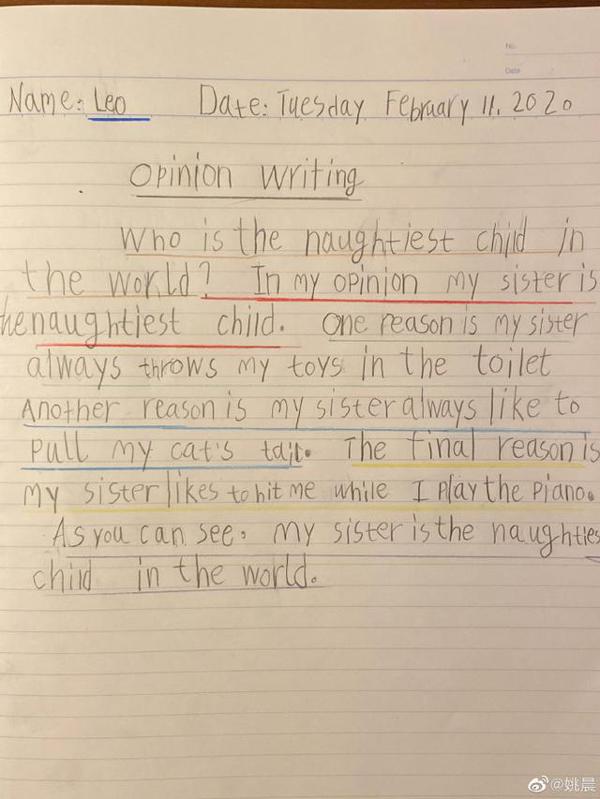 No.
Date
Name: Leo Date: Tuesday February 11. 2020
Opinion writing
Who is the naughtiest child in
the world? In my opinion my sister is
he naughtiest child. One reason is my sister
always throws my toys in the toilet
Another reason is my sister always like to
pull my cat's tail. The final reason is
my sister likes to hit me while I play the piano.
As you can see. my sister is the naughties
child in the world.
@姚晨